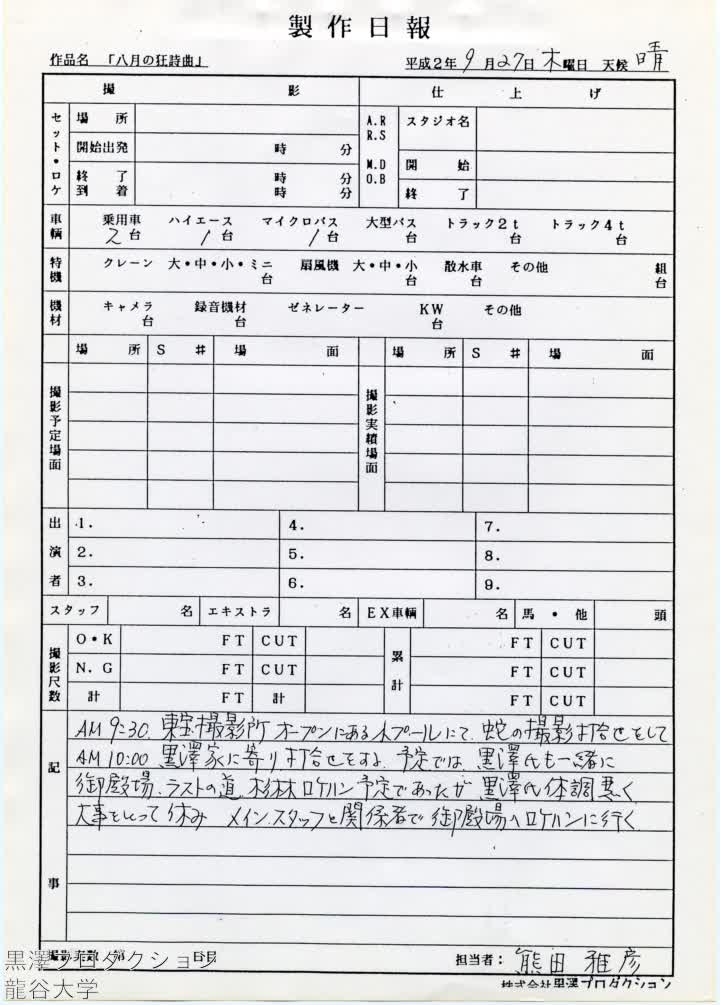 製作日報
作品名 「八月の狂詩曲」 平成2年9月27日 木曜日 天候 晴
撮影 仕上げ
セット・ロケ 場所 A.R R.S スタジオ名
開始出発 時 分
終了到着 時 分 時 分 M.D O.B 開始
終了
車輌 乗用車 ハイエース マイクロバス 大型バス トラック2t トラック4t
2台 1台 1台 台 台 台
特機 クレーン 大・中・小・ミニ 扇風機 大・中・小 散水車 その他 組
台 台 台 台
機材 キャメラ 録音機材 ゼネレーター KW その他
台 台 台
場所 S# 場面 場所 S# 場面
撮影予定場面 撮影実績場面
出演者 1. 4. 7.
2. 5. 8.
3. 6. 9.
スタッフ 名 エキストラ 名 EX車輌 名 馬・他 頭
撮影尺数 O・K FT CUT 累計 FT CUT
N.G FT CUT FT CUT
計 FT 計 FT CUT
記事
AM 9:30. 東宝撮影所オープンにある小プールにて、蛇の撮影打合せをして
AM 10:00 黒澤家に寄り打合せをする、予定では、黒澤氏も一緒に
御殿場、ラストの道、杉林ロケハン予定であったが 黒澤氏体調悪く
大事をとって休み メイン、スタッフと関係者で御殿場へロケハンに行く
担当者: 熊田雅彦
株式会社黒澤プロダクション
黒澤プロダクション
龍谷大学